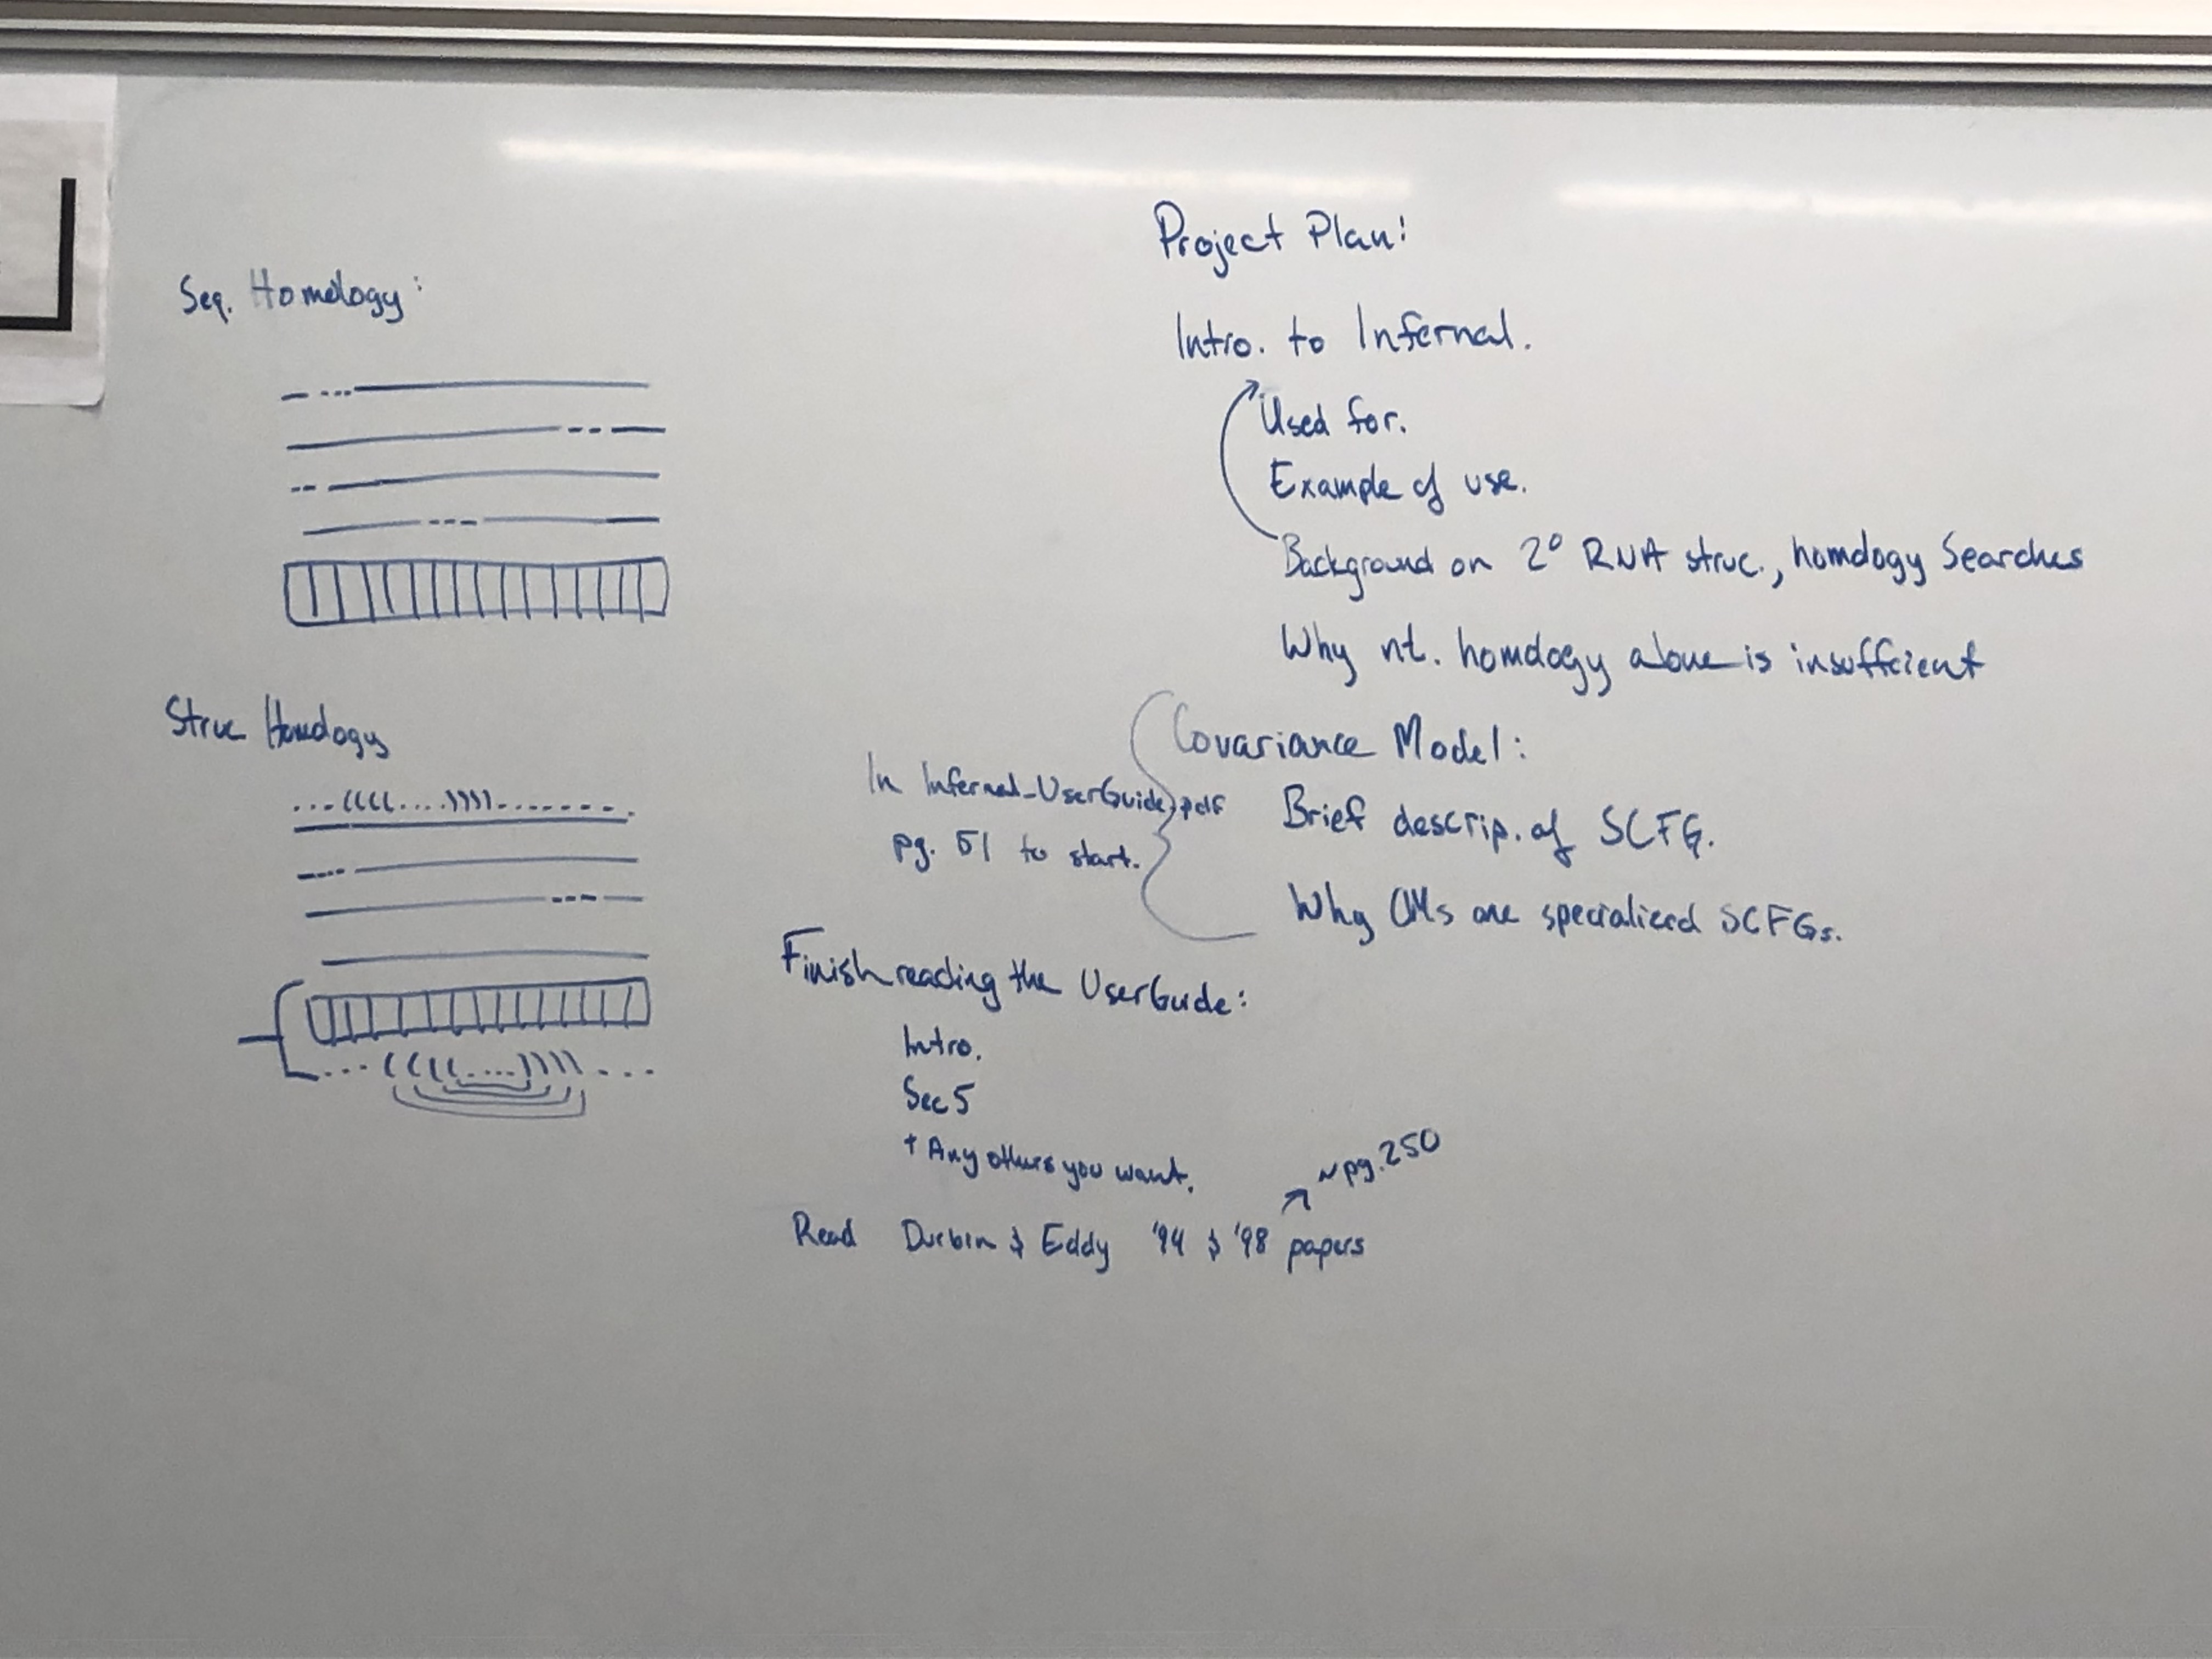 Seq. Homology:
Struc Homology
...((((....)))).......
...((((....))))...
Project Plan:
Intro. to Infernal.
Used for.
Example of use.
Background on 2° RNA struc., homology Searches
Why nt. homology alone is insufficient
Covariance Model:
Brief descrip. of SCFG.
Why CMs are specialized SCFGs.
In Infernal_UserGuide.pdf
pg. 51 to start.
Finish reading the UserGuide:
Intro.
Sec 5
+ Any others you want.
~pg. 250
Read Durbin & Eddy '94 & '98 papers